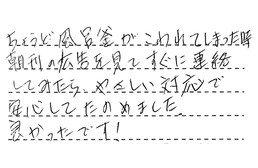 ちょうど風呂釜がこわれてしまった時
朝刊の広告を見てすぐに連絡
してみたら、やさしい対応で
安心してたのめました。
良かったです!